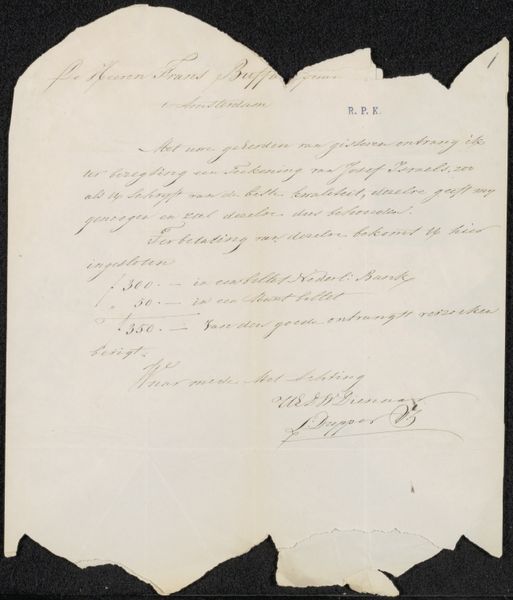 De Heeren Frans Buffa
Amsterdam
1
R. P. K.
Met uwe geëerden van gisteren ontvang ik
ter bezigting een Teekening van Josef Israels, zoo
als U schrijft van de beste kwaliteit, dezelve geeft mij
genoegen en zal dezelve dus behouden.
Ter betaling van dezelve bekomt U hier
ingesloten
ƒ 300.— in een billet Nederl: Bank
„ 50.— in een Munt billet
ƒ 350.— Van den goede ontvangst verzoeke
berigt.
Waar mede Met Achting
UEd W Dienaar
L Dupper